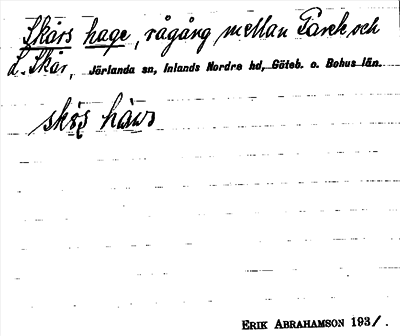 Skårs hage, rågång mellan Torek och
L. Skår, Jörlanda sn, Inlands Nordre hd, Göteb. o. Bohus län.
ERIK ABRAHAMSON 193/.